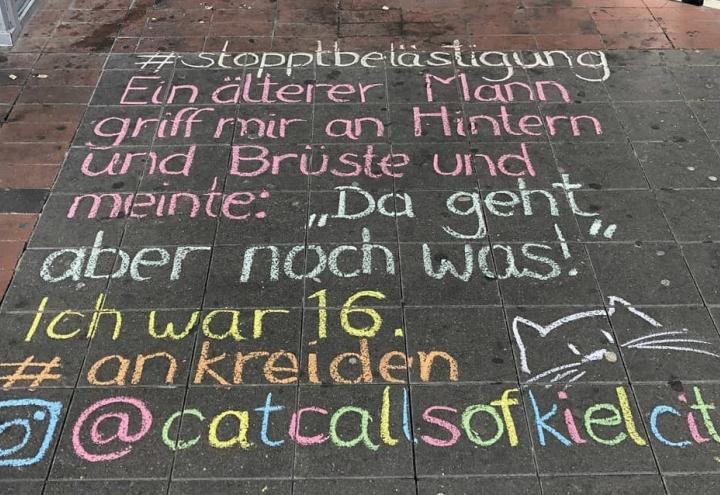 #stopptbelästigung
Ein älterer Mann
griff mir an Hintern
und Brüste und
meinte: „Da geht
aber noch was!“
Ich war 16.
#ankreiden
@catcallsofkielcity